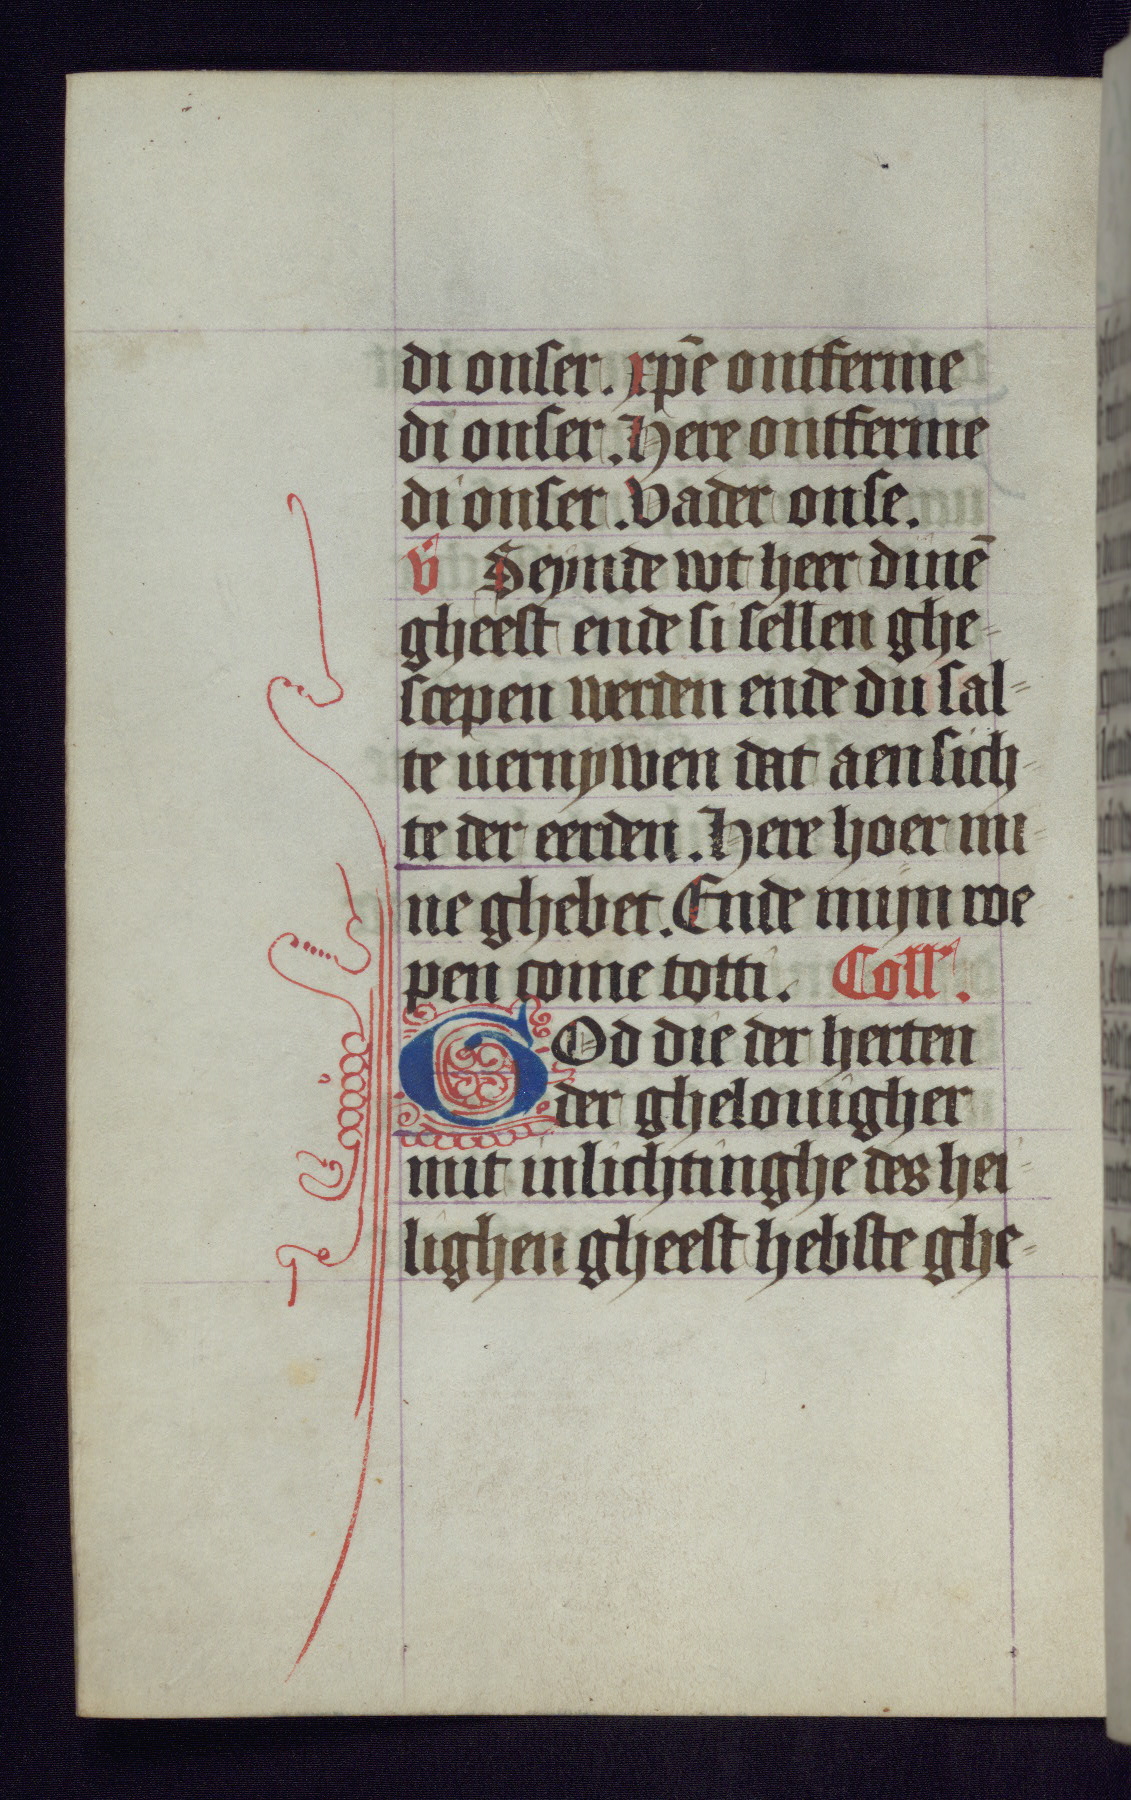 di onser. xp̄e ontferme
di onser. Here ontferme
di onser. Vader onse.
v̄ Seynde wt heer dinē
gheest ende si sellen ghe-
scepen werden ende du sal-
te vernywen dat aensich-
te der eerden. Here hoer mi-
ne ghebet. Ende mijn roe
pen come totti. Coll'.
GOd die der herten
der ghelouigher
mit inlichtinghe des hei-
lighen gheest hebste ghe-